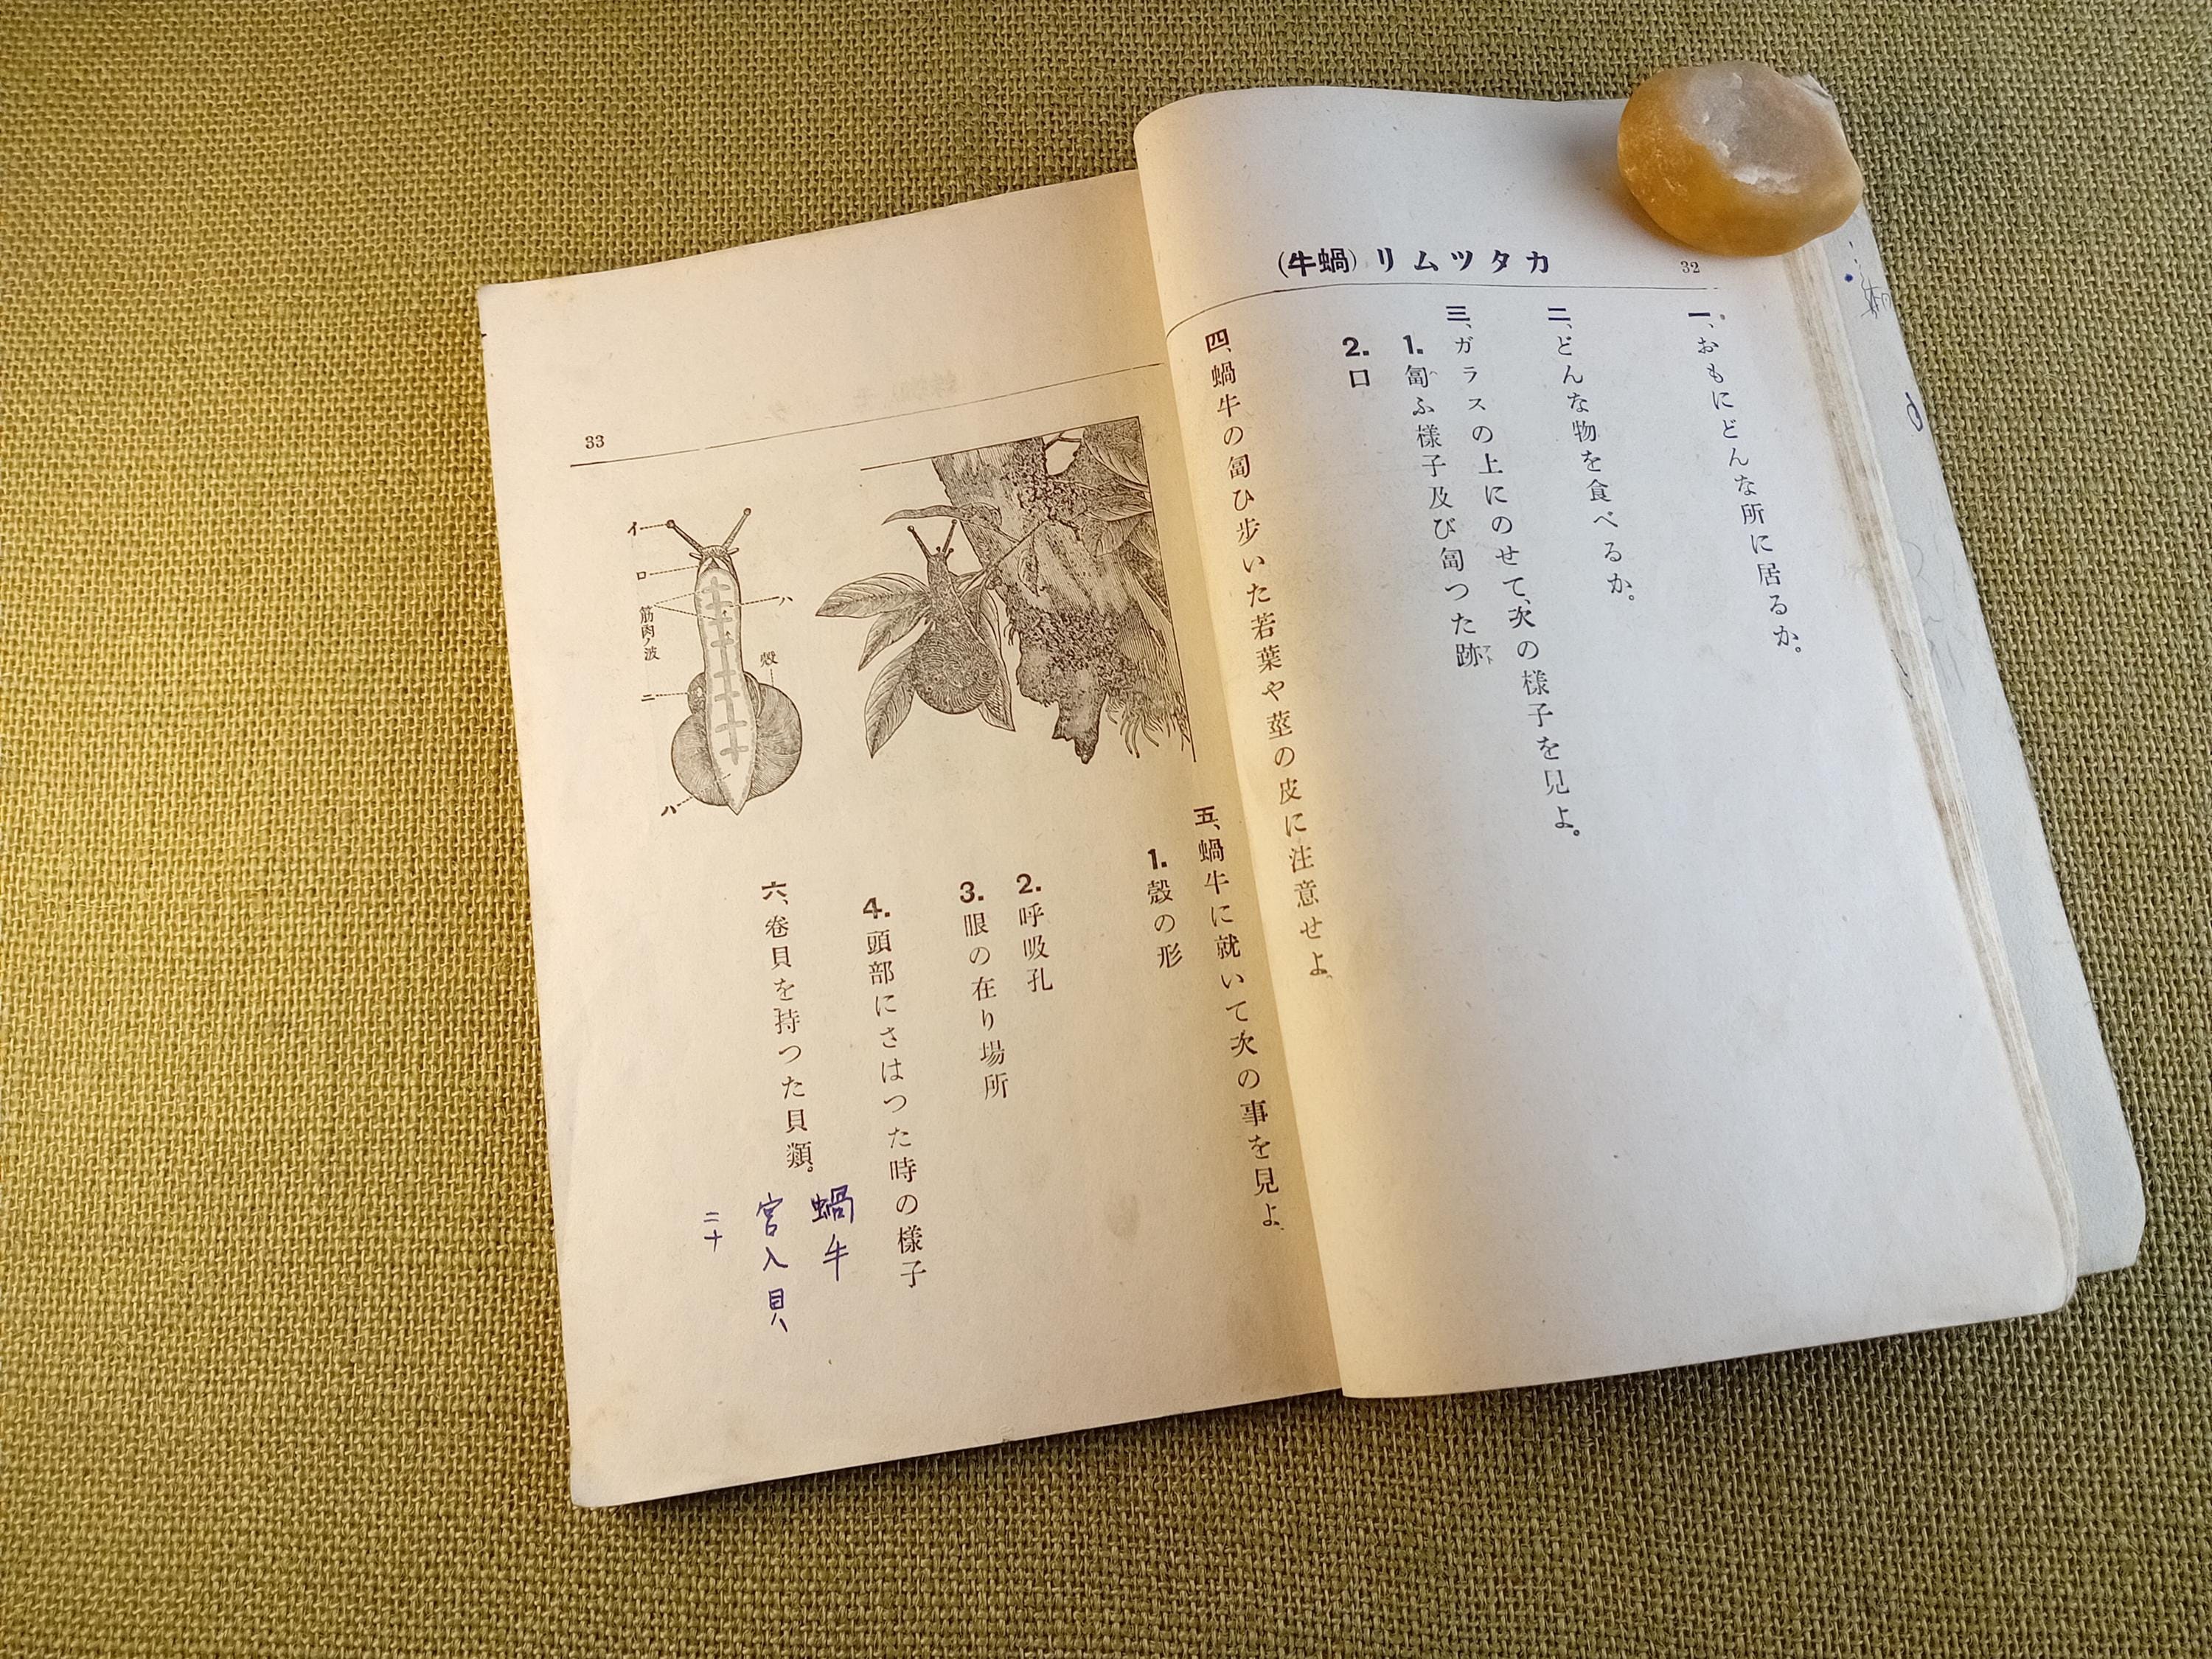 32
カタツムリ(蝸牛)
一、おもにどんな所に居るか。
二、どんな物を食べるか。
三、ガラスの上にのせて、次の様子を見よ。
1. 匐ふ様子及び匐つた跡
アト
2. 口
四、蝸牛の匐ひ歩いた若葉や莖の皮に注意せよ。
33
五、蝸牛に就いて次の事を見よ。
1. 殼の形
2. 呼吸孔
3. 眼の在り場所
4. 頭部にさはつた時の様子
六、卷貝を持つた貝類。
イ
ロ
ハ
筋肉ノ波
殼
ニ
ハ
蝸牛
宮入貝
二十